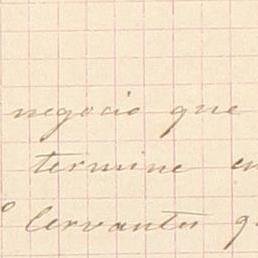 negocio que
termine en
Cervantes q